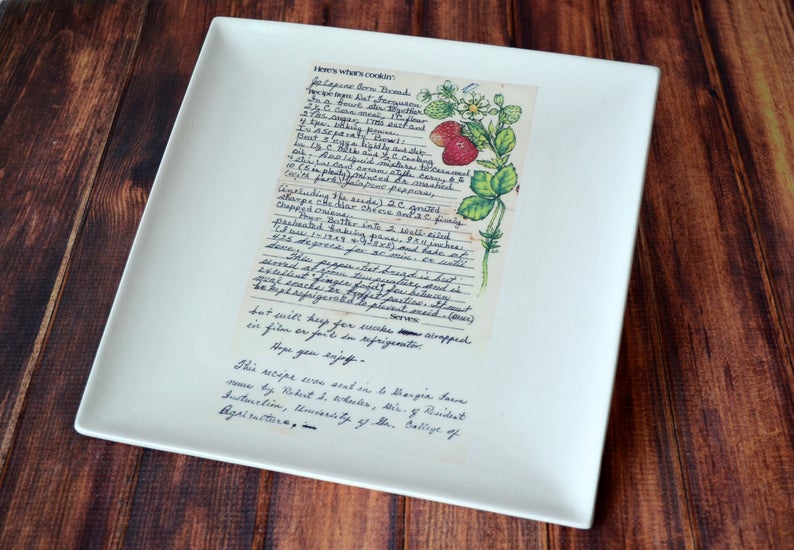 Here's what's cookin':
Jalapeno Corn Bread
Recipe from: Dot Ferguson
In a bowl stir together
2½ C. corn meal, 1 C. flour
2 TBS sugar, 1 TBS salt and
4 tsp. baking powder.
In A Separate Bowl:
Beat 3 eggs lightly and stir
in 1½ C. milk and ½ C cooking
oil. Add liquid mixture to cornmeal
& stir in 1 can cream style corn, 6 to
10 (5 is plenty) minced or mashed
(with fork) Jalapeno peppers,
(including the seeds) 2 C. grated
sharp cheddar cheese and 2 C. finely
chopped onions.
Pour Batter into 2 well oiled
preheated baking pans, 9 X 11 inches,
(I use 1-13x9 & 1-8x8) and bake at
425 degrees for 30 min. or until
done.
This pepper-hot bread is best
served at room temperature and is
excellent "finger food" for between
meal snacks or buffet parties. It must
be kept refrigerated to prevent mold - (over)
Serves:
but will keep for weeks wrapped
in film or foil in refrigerator.
Hope you enjoy -
This recipe was sent in to Georgia Farm
news by Robert S. Wheeler, Dir. of Resident
Instruction, University of Ga. College of
Agriculture,